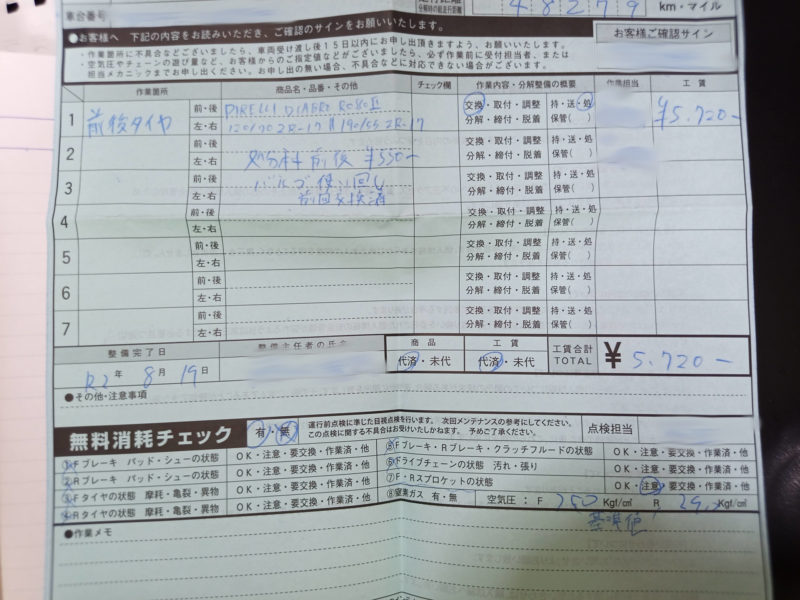 車台番号
48279 km・マイル
●お客様へ 下記の内容をお読みいただき、ご確認のサインをお願いいたします。
・作業箇所に不具合などございましたら、車両受け渡し後15日以内にお申し出頂きますよう、お願いいたします。
・空気圧やチェーンの遊び量など、お客様からのご指定値などがございましたら、必ず作業前に受付担当者、または
担当メカニックまでお申し出ください。お申し出の無い場合、不具合などに対応できない場合がございます。
お客様ご確認サイン
作業箇所 商品名・品番・その他 チェック欄 作業内容・分解整備の概要 作業担当 工賃
1 前後タイヤ 前・後 PIRELLI DIABLO ROSSO 交換・取付・調整 持・送・処 ¥5,720-
左・右 120/70ZR-17 190/55ZR-17 分解・締付・脱着 保管( )
2 前・後 処分料 前後 ¥550- 交換・取付・調整 持・送・処
左・右 分解・締付・脱着 保管( )
3 前・後 バルブ使い回し 交換・取付・調整 持・送・処
左・右 前回交換済 分解・締付・脱着 保管( )
4 前・後 交換・取付・調整 持・送・処
左・右 分解・締付・脱着 保管( )
5 前・後 交換・取付・調整 持・送・処
左・右 分解・締付・脱着 保管( )
6 前・後 交換・取付・調整 持・送・処
左・右 分解・締付・脱着 保管( )
7 前・後 交換・取付・調整 持・送・処
左・右 分解・締付・脱着 保管( )
整備完了日 整備主任者の氏名 商品 工賃 工賃合計 TOTAL ¥5,720-
R2年 8月 19日 代済・未代 代済・未代
●その他・注意事項
無料消耗チェック 有・無
運行前点検に準じた目視点検を行います。 次回メンテナンスの参考にしてください。
この点検に関する不具合はお受けいたしかねます。 予めご了承ください。
点検担当
①Fブレーキ パッド・シューの状態 OK・注意・要交換・作業済・他
②Rブレーキ パッド・シューの状態 OK・注意・要交換・作業済・他
③Fタイヤの状態 摩耗・亀裂・異物 OK・注意・要交換・作業済・他
④Rタイヤの状態 摩耗・亀裂・異物 OK・注意・要交換・作業済・他
⑤Fブレーキ・Rブレーキ・クラッチフルードの状態 OK・注意・要交換・作業済・他
⑥ドライブチェーンの状態 汚れ・張り OK・注意・要交換・作業済・他
⑦F・Rスプロケットの状態 OK・注意・要交換・作業済・他
⑧窒素ガス 有・無 空気圧: F 250 Kgf/cm² R 290 Kgf/cm²
基準値
●作業メモ